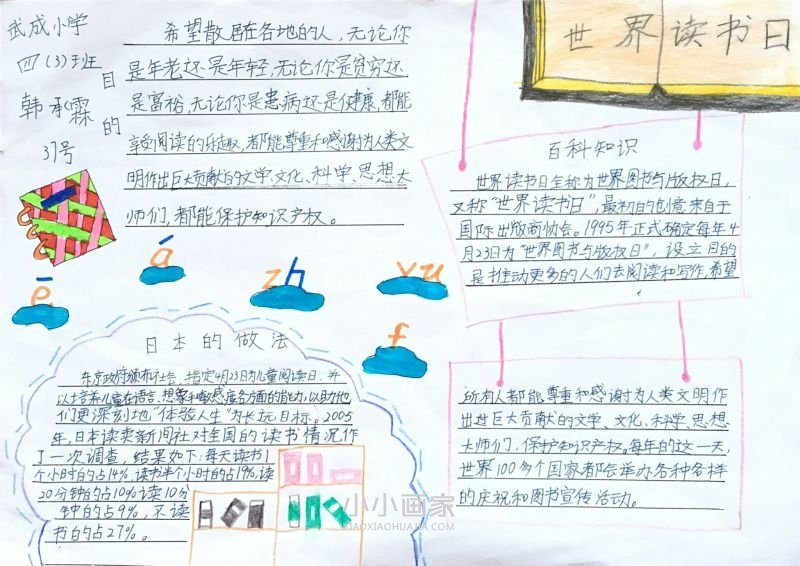 武成小学
四（3）班
韩承霖
37号
目的
希望散居在各地的人，无论你
是年老还是年轻，无论你是贫穷还
是富裕，无论你是患病还是健康，都能
享受阅读的乐趣，都能尊重和感谢为人类文
明作出巨大贡献的文学、文化、科学、思想大
师们，都能保护知识产权。
世界读书日
百科知识
世界读书日全称为世界图书与版权日，
又称“世界读书日”，最初的创意来自于
国际出版商协会。1995年正式确定每年4
月23日为“世界图书与版权日”，设立目的
是推动更多的人们去阅读和写作，希望
所有人都能尊重和感谢为人类文明作
出过巨大贡献的文学、文化、科学、思想
大师们，保护知识产权。每年的这一天，
世界100多个国家都会举办各种各样
的庆祝和图书宣传活动。
ē
á
zh
yu
f
日本的做法
东京政府颁布社会，指定4月23日为儿童阅读日，并
以培养儿童在语言、想象和敏感度各方面的能力，以助他
们更深刻地“体验人生”为长远目标。2005
年，日本读卖新闻社对全国的读书情况作
了一次调查，结果如下：每天读书1
个小时的占14%，读书半个小时的占19%，读
20分钟的占10%读10分
钟的占9%，不读
书的占27%。
小小画家
XIAOXIAOHUAJIA.COM